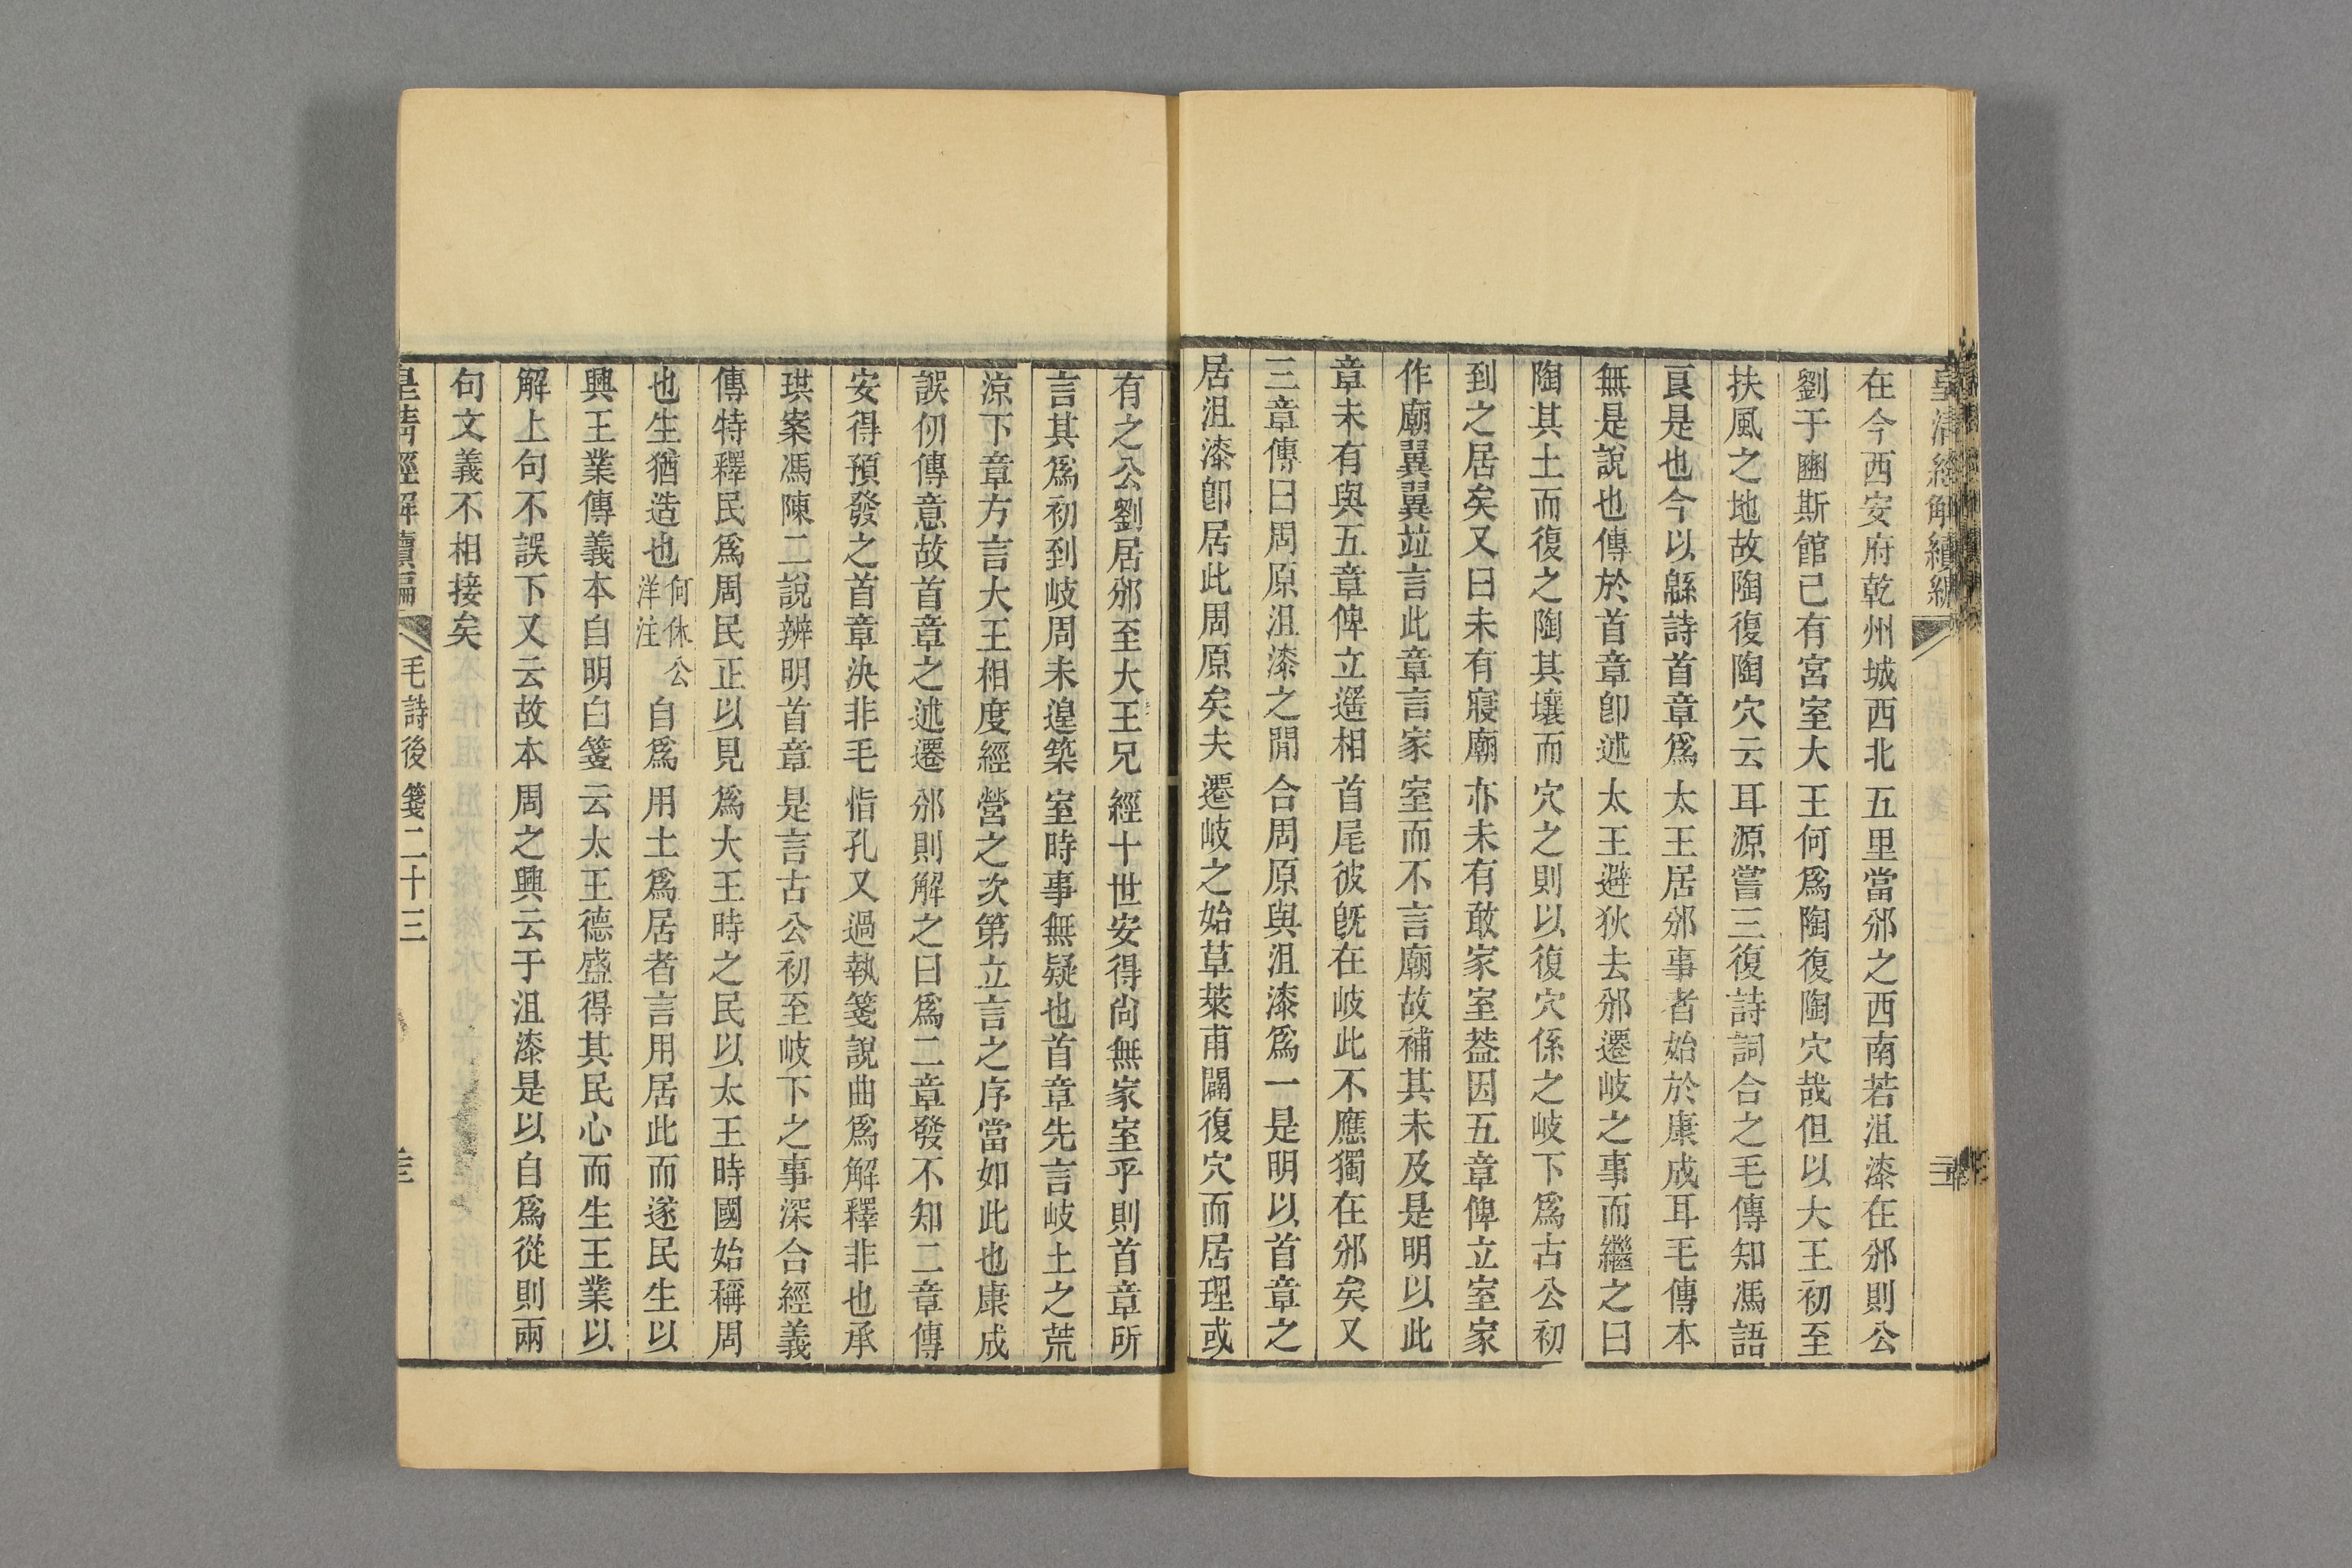 皇清經解續編
在今西安府乾州城西北五里當邠之西南若沮漆在邠則公
劉于豳斯館已有宮室大王何爲陶復陶穴哉但以大王初至
扶風之地故陶復陶穴云耳源嘗三復詩詞合之毛傳知馮語
良是也今以緜詩首章爲太王居邠事者始於康成耳毛傳本
無是說也傳於首章卽述太王避狄去邠遷岐之事而繼之曰
陶其土而復之陶其壤而穴之則以復穴係之岐下爲古公初
到之居矣又曰未有寢廟亦未有敢家室葢因五章俾立室家
作廟翼翼竝言此章言家室而不言廟故補其未及是明以此
章未有與五章俾立遥相首尾彼旣在岐此不應獨在邠矣又
三章傳曰周原沮漆之閒合周原與沮漆爲一是明以首章之
居沮漆卽居此周原矣夫遷岐之始草萊甫闢復穴而居理或
有之公劉居邠至大王兄經十世安得尙無家室乎則首章所
言其爲初到岐周未遑築室時事無疑也首章先言岐土之荒
涼下章方言大王相度經營之次第立言之序當如此也康成
誤仞傳意故首章之述遷邠則解之曰爲二章發不知二章傳
安得預發之首章決非毛恉孔又過執箋說曲爲解釋非也承
珙案馮陳二說辨明首章是言古公初至岐下之事深合經義
傳特釋民爲周民正以見爲大王時之民以太王時國始稱周
也生猶造也何休公洋注自爲用土爲居者言用居此而遂民生以
興王業傳義本自明白箋云太王德盛得其民心而生王業以
解上句不誤下又云故本周之興云于沮漆是以自爲從則兩
句文義不相接矣
皇清經解續編 毛詩後箋二十三